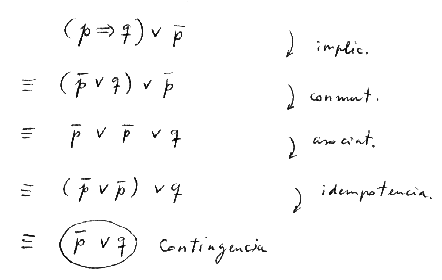 (p ⇒ q) ∨ p̄ implic.
≡ (p̄ ∨ q) ∨ p̄ conmut.
≡ p̄ ∨ p̄ ∨ q asociat.
≡ (p̄ ∨ p̄) ∨ q idempotencia.
≡ p̄ ∨ q Contingencia